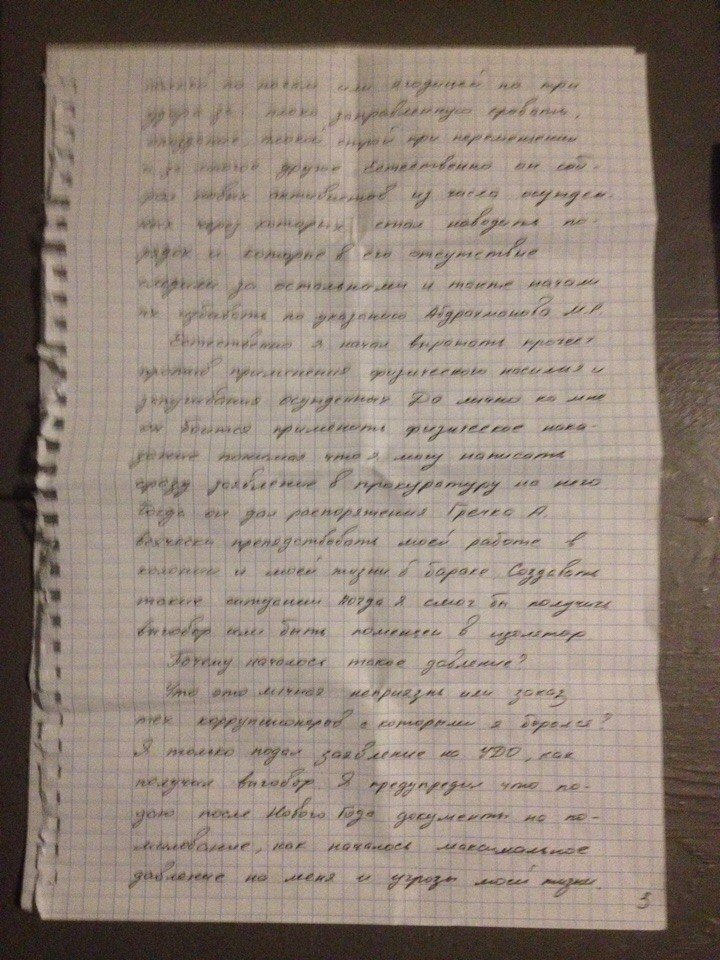 по почкам или ягодицей по три
удара за плохо заправленную кровать,
опоздание, плохой строй при перемещении
и за многое другое Естественно он соб-
рал новых активистов из числа осужден-
ных через которых стал наводить по-
рядок и которые в его отсутствие
следили за остальными и также начали
их избивать по указанию Абдрахманова М.Р.
Естественно я начал выражать протест
против применения физического насилия и
запугивания осужденных До лично ко мне
он боится применять физическое нака-
зание понимая что я могу написать
сразу заявление в прокуратуру на него
Тогда он дал распоряжения Гречко А.
всячески препятствовать моей работе в
колонии и моей жизни в бараке. Создавать
такие ситуации когда я смог бы получить
выговор или быть помещен в изолятор
Почему началось такое давление?
Что это личная неприязнь или заказ
тех коррупционеров с которыми я боролся?
Я только подал заявление на УДО, как
получил выговор Я предупредил что по-
даю после Нового Года документы на по-
милование, как началось максимальное
давление на меня и угрозы моей жизни.
5